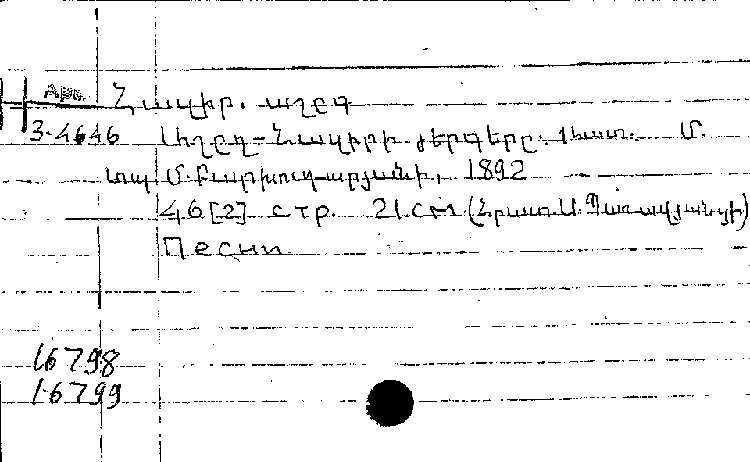 Арм. Նավիր. աշըգ
3-4646 Աշըղ-Նավիրի երգերը. 1 հատ. Մ.
տպ Մ. Բարխուդարյանի, 1892
46 [2] стр. 21 см (Հրատ. Ա. Պատավյանցի)
Песни
16798
16799